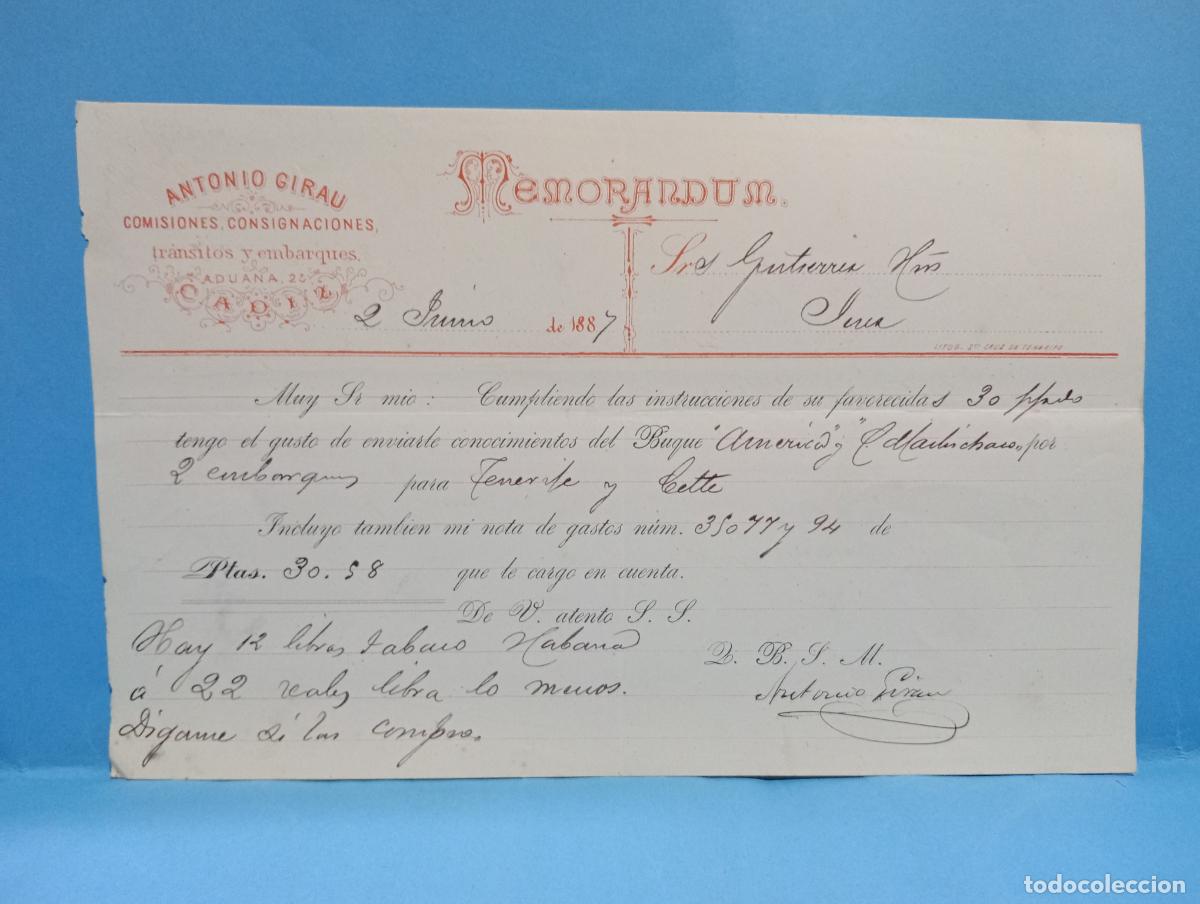 ANTONIO GIRAU
COMISIONES, CONSIGNACIONES,
tránsitos y embarques.
ADUANA, 25
CADIZ
MEMORANDUM.
2 Junio de 1887
Srs Gutierrez Hns
Jerez
LITOG. STA CRUZ DE TENERIFE
Muy Sr mio: Cumpliendo las instrucciones de su favorecidas 30 ppado
tengo el gusto de enviarle conocimientos del Buque "America" y "C Machichaco" por
2 embarques para Tenerife y Cette
Incluyo tambien mi nota de gastos núm. 35077 y 94 de
Ptas. 30.58 que le cargo en cuenta.
De V. atento S. S.
Q. B. S. M.
Antonio Girau
Hay 12 libras tabaco Habana
á 22 reales libra lo menos.
Digame si las compro.
todocoleccion